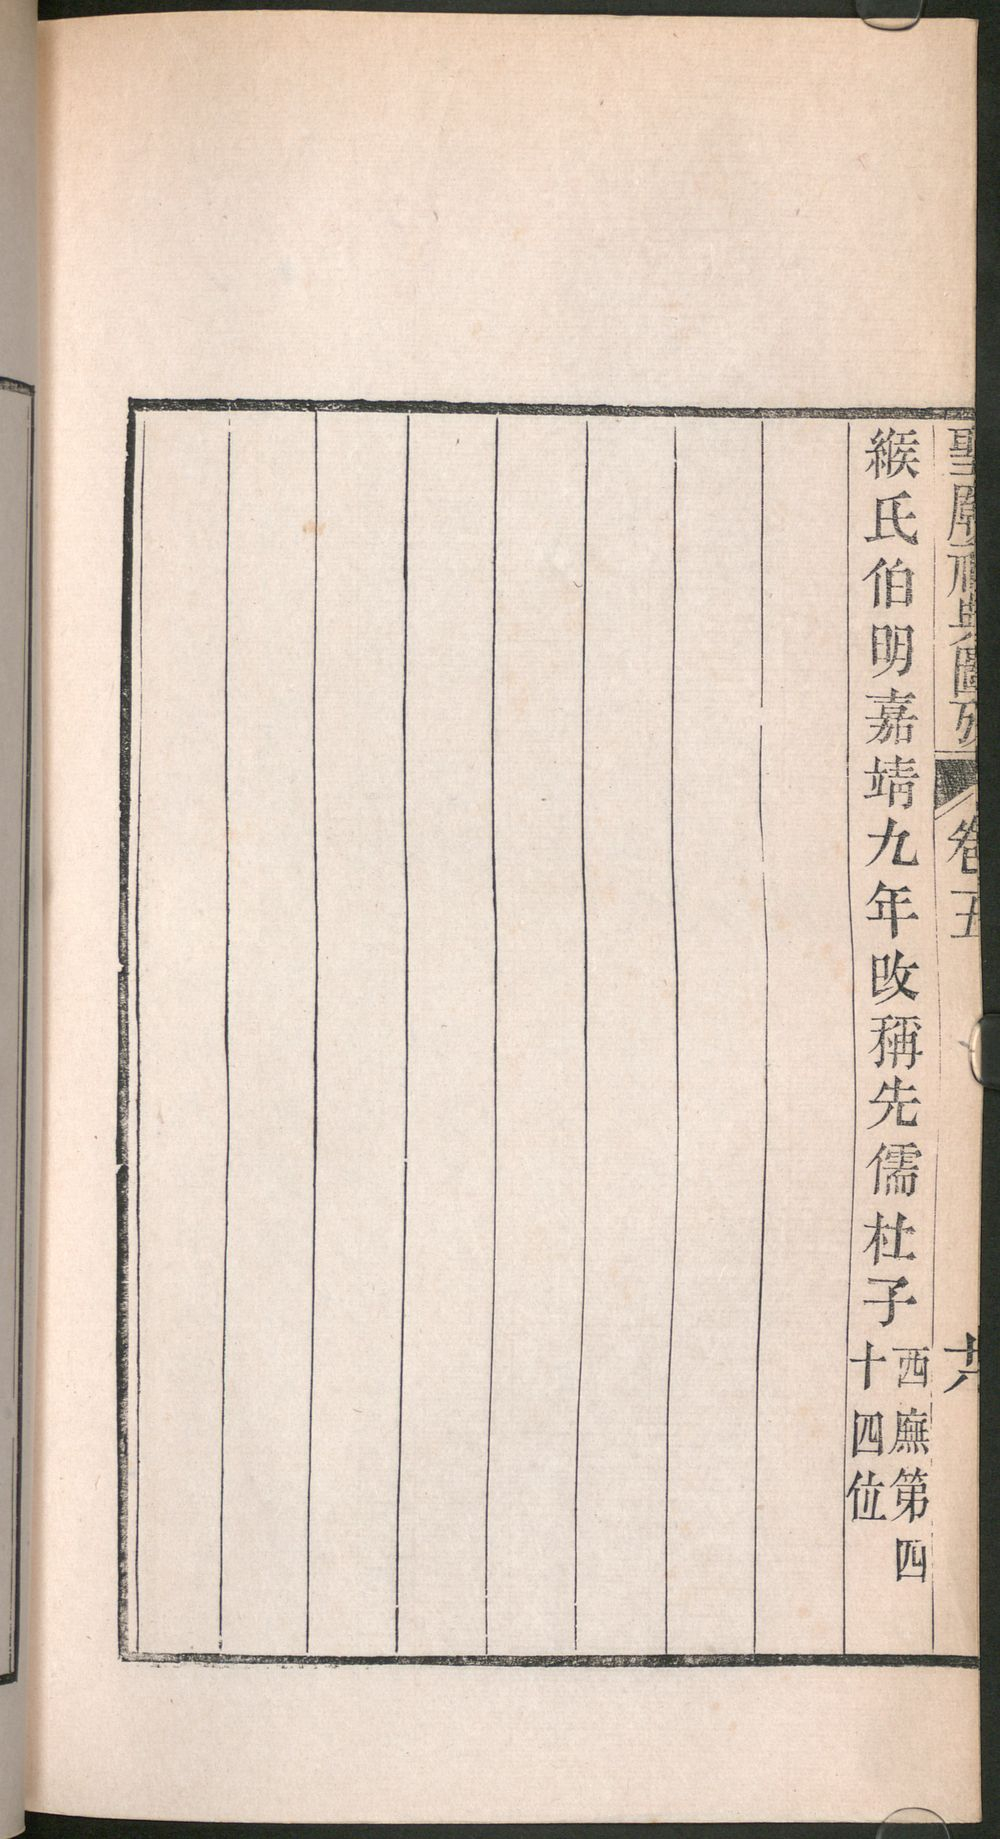 聖廟祀典圖攷 卷五
緱氏伯明嘉靖九年改稱先儒杜子
西廡第四
十四位